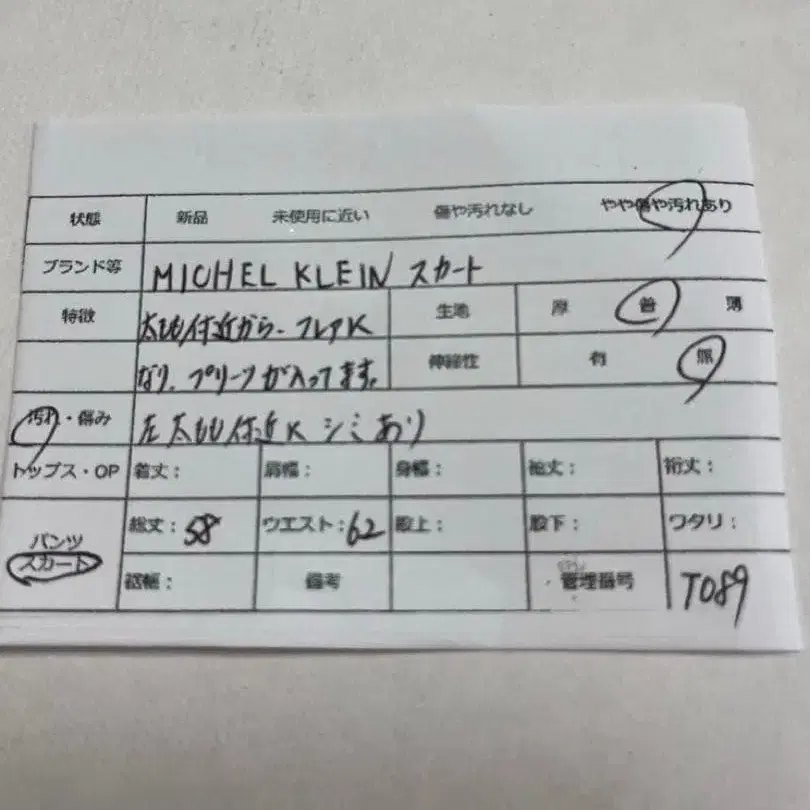 状態 新品 未使用に近い 傷や汚れなし やや傷や汚れあり
ブランド等 MICHEL KLEIN スカート
特徴 太もも付近から、フレアに 生地 厚 普 薄
なり、プリーツが入ってます。 伸縮性 有 無
汚れ・傷み 左太もも付近に シミあり
トップス・OP 着丈： 肩幅： 身幅： 袖丈： 裄丈：
パンツ スカート 総丈：58 ウエスト：62 股上： 股下： ワタリ：
裾幅： 備考 管理番号 T089